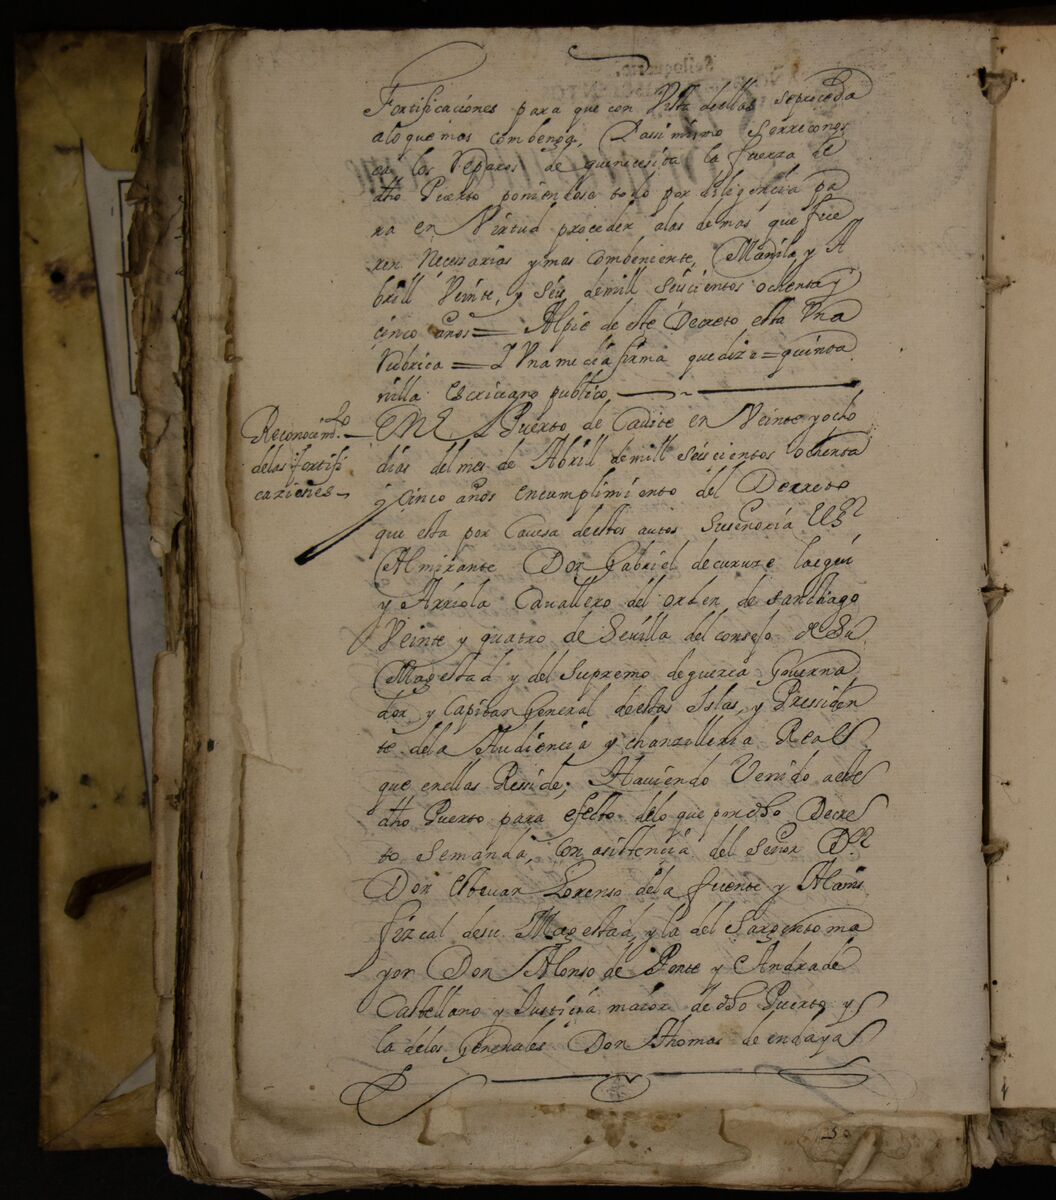 Fortificaciones para que con Vista de ellas se proceda
a lo que mas combenga, Y asi mismo se rreconos
can los Reparos de que necesita la fuerza de
dho Puerto poniendose todo por diligencia pa
ra en Virtud proceder a las demas que fue
ren Necessarias y mas combeniente, Manila, y A
brill Veinte, y Seis de mill seiscientos ochenta y
cinco años = Al pie de este Decreto esta Vna
Rubrica = Y Vna media firma que dize = quinta
nilla escrivano publico,
Reconocimto
de las fortifi
caziones
EN El Puerto de Cavite en Veinte y ocho
dias del mes de Abrill de mill seiscientos ochenta
y Cinco años en cumplimiento del Decreto
que esta por Cavesa de estos autos Su señoria El Sr
Almirante Don Gabriel de curuze laegui
y Arriola Cavallero del orden de Santhiago
Veinte y quatro de Sevilla del consejo de Su
Magestad y del Supremo de guerra Governa
dor y Capitan General de estas Islas, y Pressiden
te de la Audiencia y chanzilleria Real
que en ellas Reside; Haviendo Venido a este
dho Puerto para efecto de lo que por dho Decre
to se manda, con asistencia del Señor Dor
Don Estevan Lorenso de la fuente y Alanis
fizcal de su Magestad, y la del Sargento ma
yor Don Alonso de Ponte y Andrade
Castellano y Justicia maior de dho Puerto y
la de los Generales Don Thomas de endaya